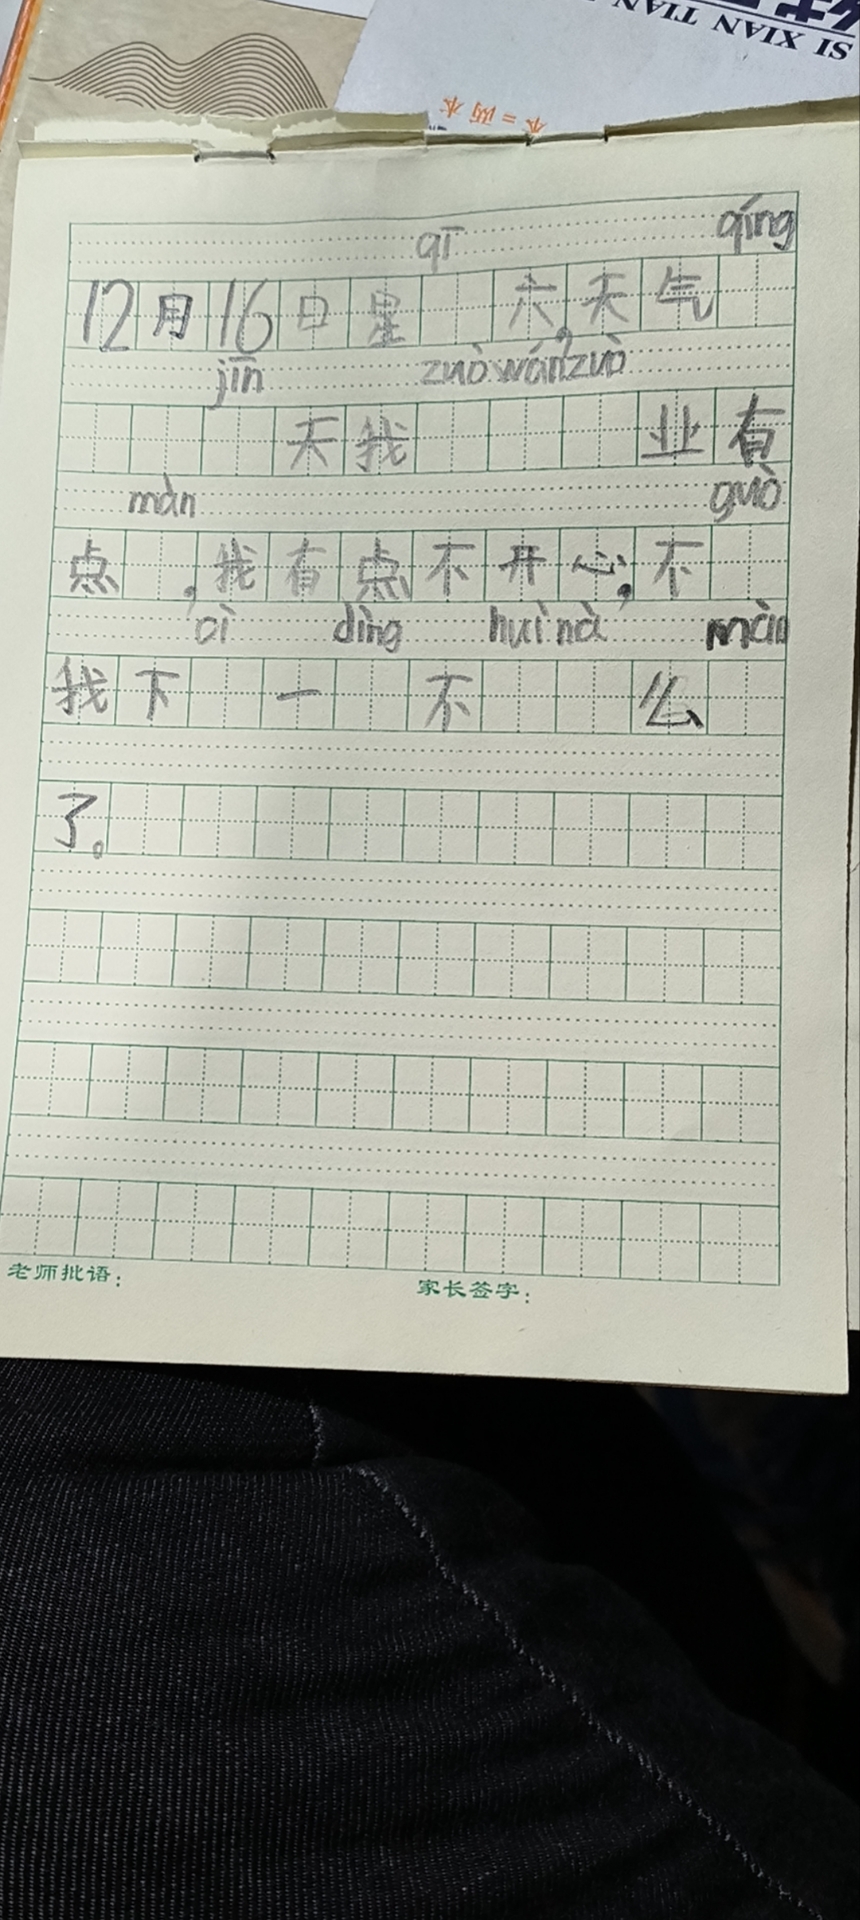 SI XIAN TIAN
本=两本
qī qíng
12月16日星 六,天气
jīn zuò wán zuò
天我 业有
màn guò
点 ,我有点不开心,不
cì dìng huì nà màn
我下 一 不 么
了。
老师批语: 家长签字: